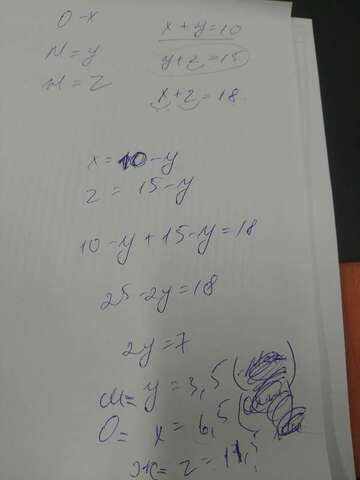 О - x
x + y = 10
М = y
y + z = 15
Ж = z
x + z = 18
x = 10 - y
z = 15 - y
10 - y + 15 - y = 18
25 - 2y = 18
2y = 7
М = y = 3,5
О = x = 6,5
Ж = z = 11,5